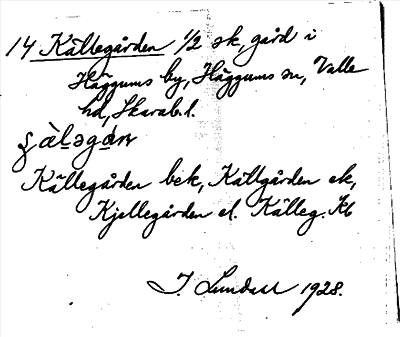 14 Källegården 1/2 sk, gård i
Häggums by, Häggums sn, Valle
hd, Skarab. l.
Källegården bek, Källgården ek,
Kjellegården el. Källeg. Kb
J. Lundahl 1928.